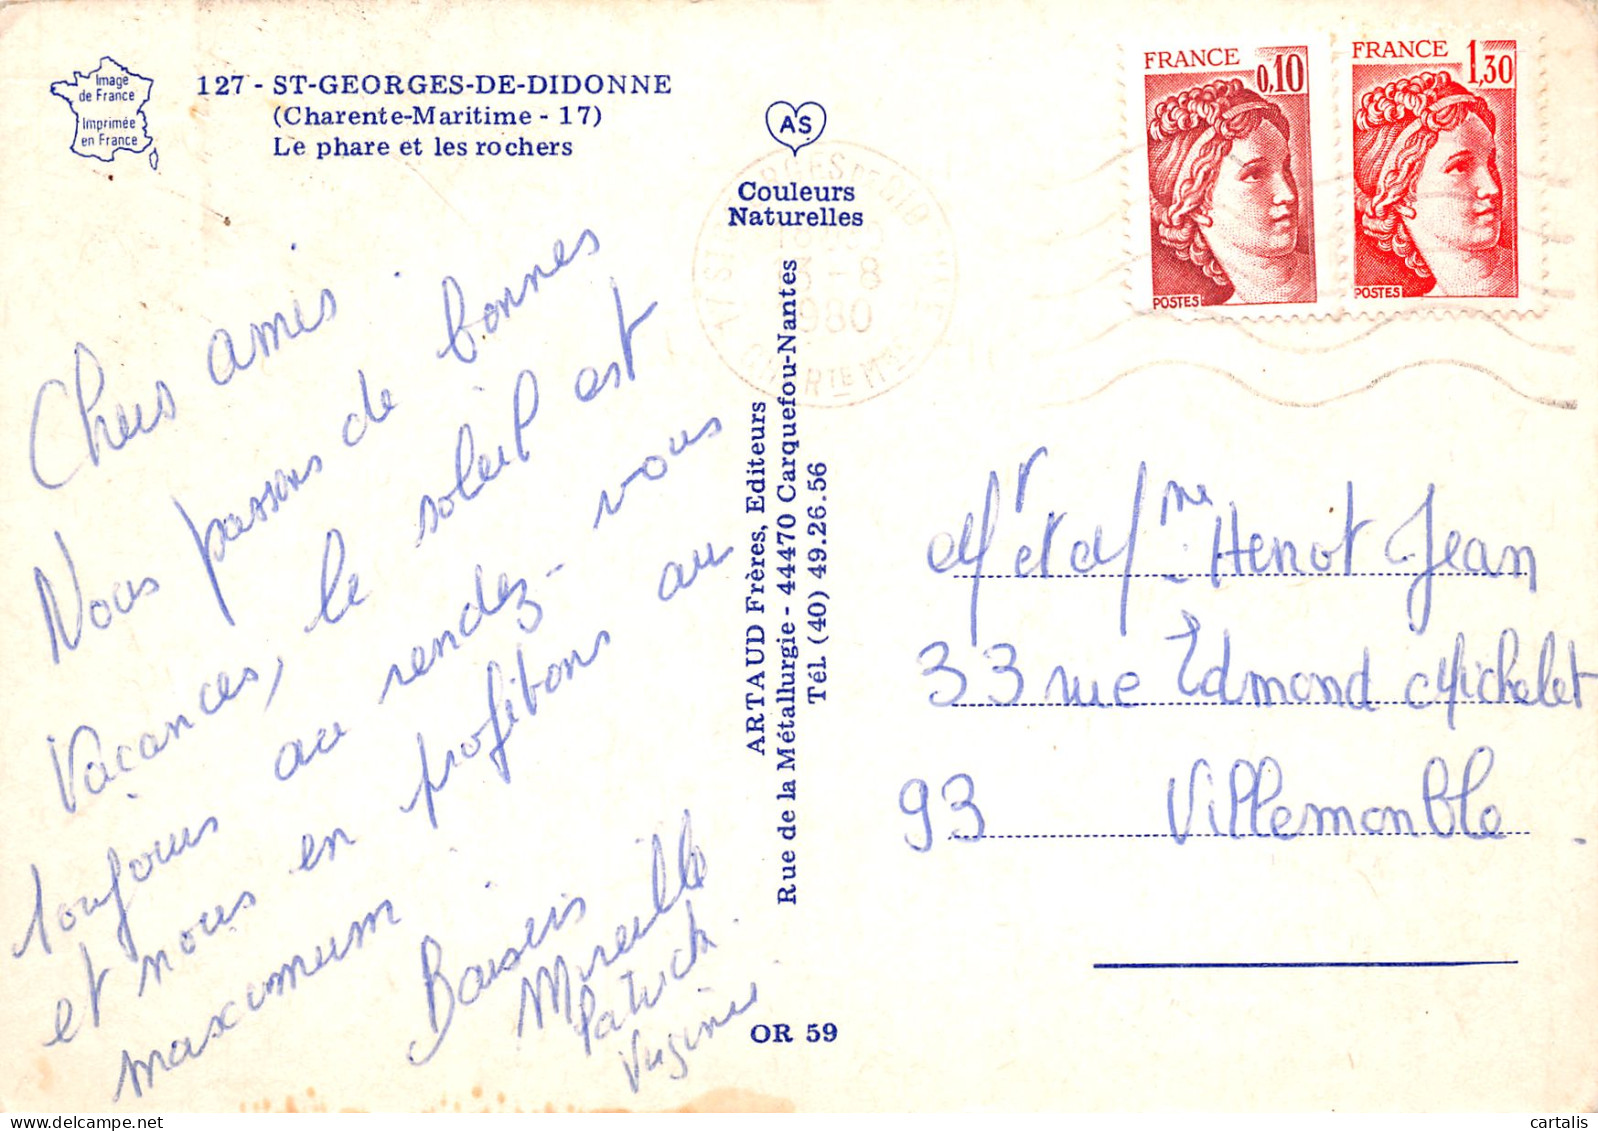 Image
de France
Imprimée
en France
127 - ST-GEORGES-DE-DIDONNE
(Charente-Maritime - 17)
Le phare et les rochers
Chers amis
Nous passons de bonnes
vacances, le soleil est
toujours au rendez-vous
et nous en profitons au
maximum.
Baisers
Mireille
Patrick.
Virginie
AS
Couleurs
Naturelles
ARTAUD Frères, Editeurs
Rue de la Métallurgie - 44470 Carquefou-Nantes
Tél. (40) 49.26.56
OR 59
8
1980
FRANCE
0,10
POSTES
FRANCE
1,30
POSTES
Mr et Mme Henot Jean
33 rue Edmond Michelet
93 Villemomble
cartalis